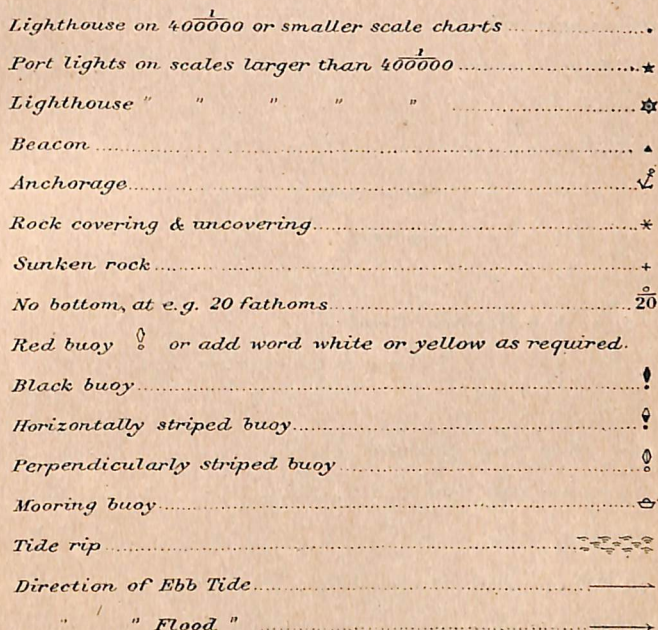 Lighthouse on 1/400000 or smaller scale charts
Port lights on scales larger than 1/400000
Lighthouse " " " " "
Beacon
Anchorage
Rock covering & uncovering
Sunken rock
No bottom, at e.g. 20 fathoms 0/20
Red buoy or add word white or yellow as required.
Black buoy
Horizontally striped buoy
Perpendicularly striped buoy
Mooring buoy
Tide rip
Direction of Ebb Tide
" " Flood "